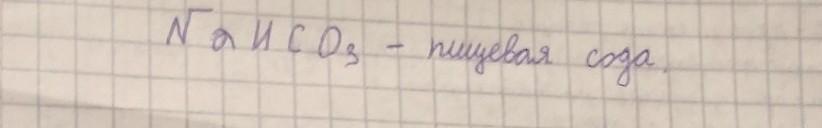 NaHCO₃ - пищевая сода.